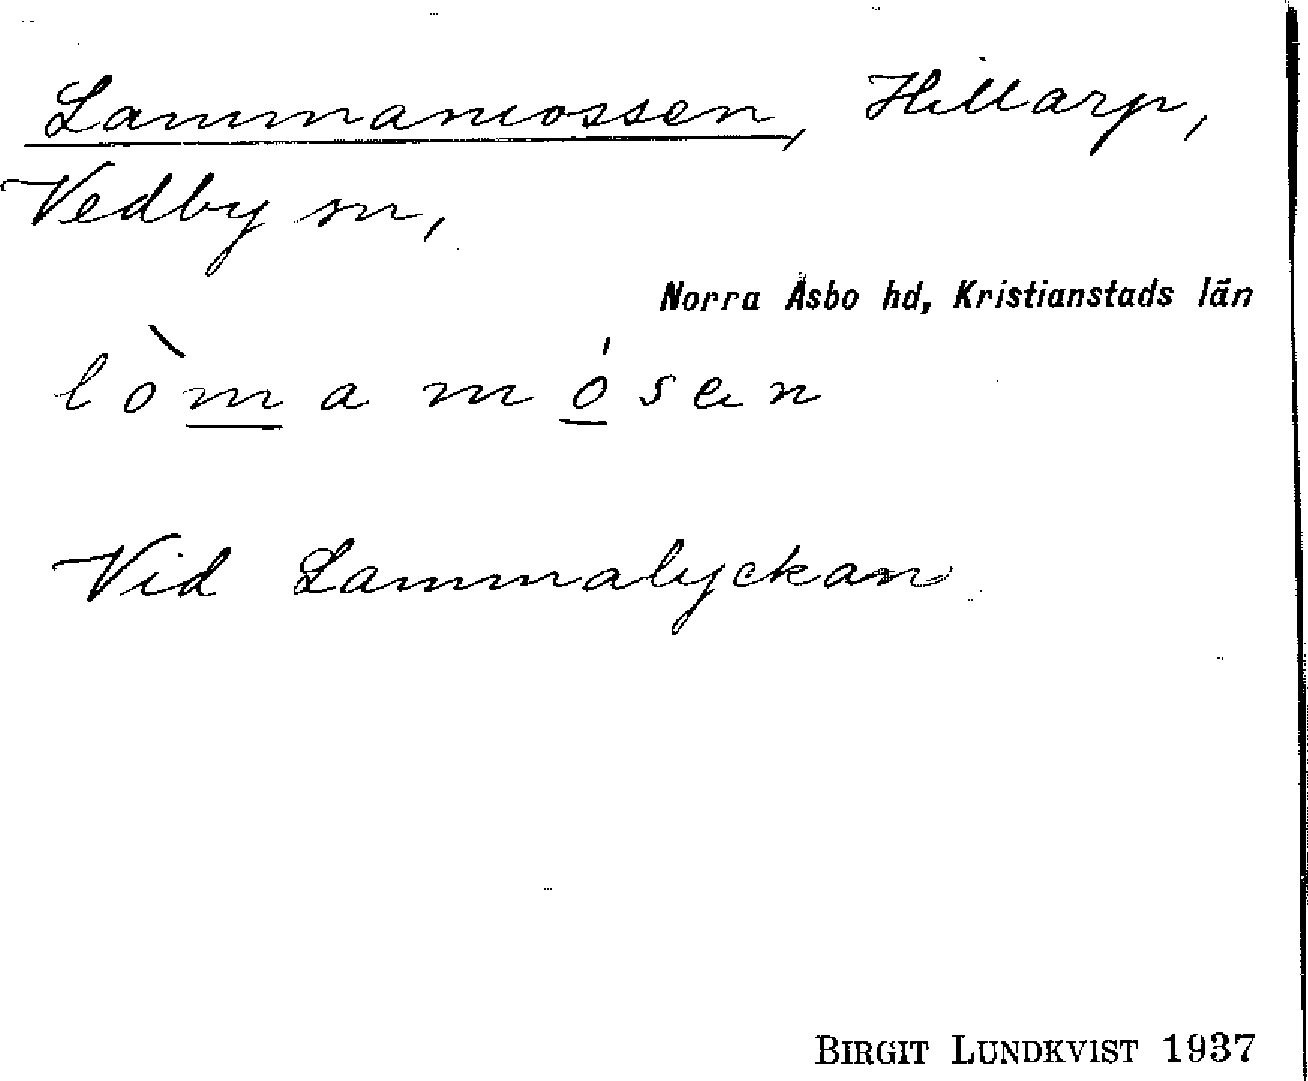 Lammamossen, Hillarp,
Vedby sn,
Norra Åsbo hd, Kristianstads län
lòmamósen
Vid Lammalyckan
BIRGIT LUNDKVIST 1937